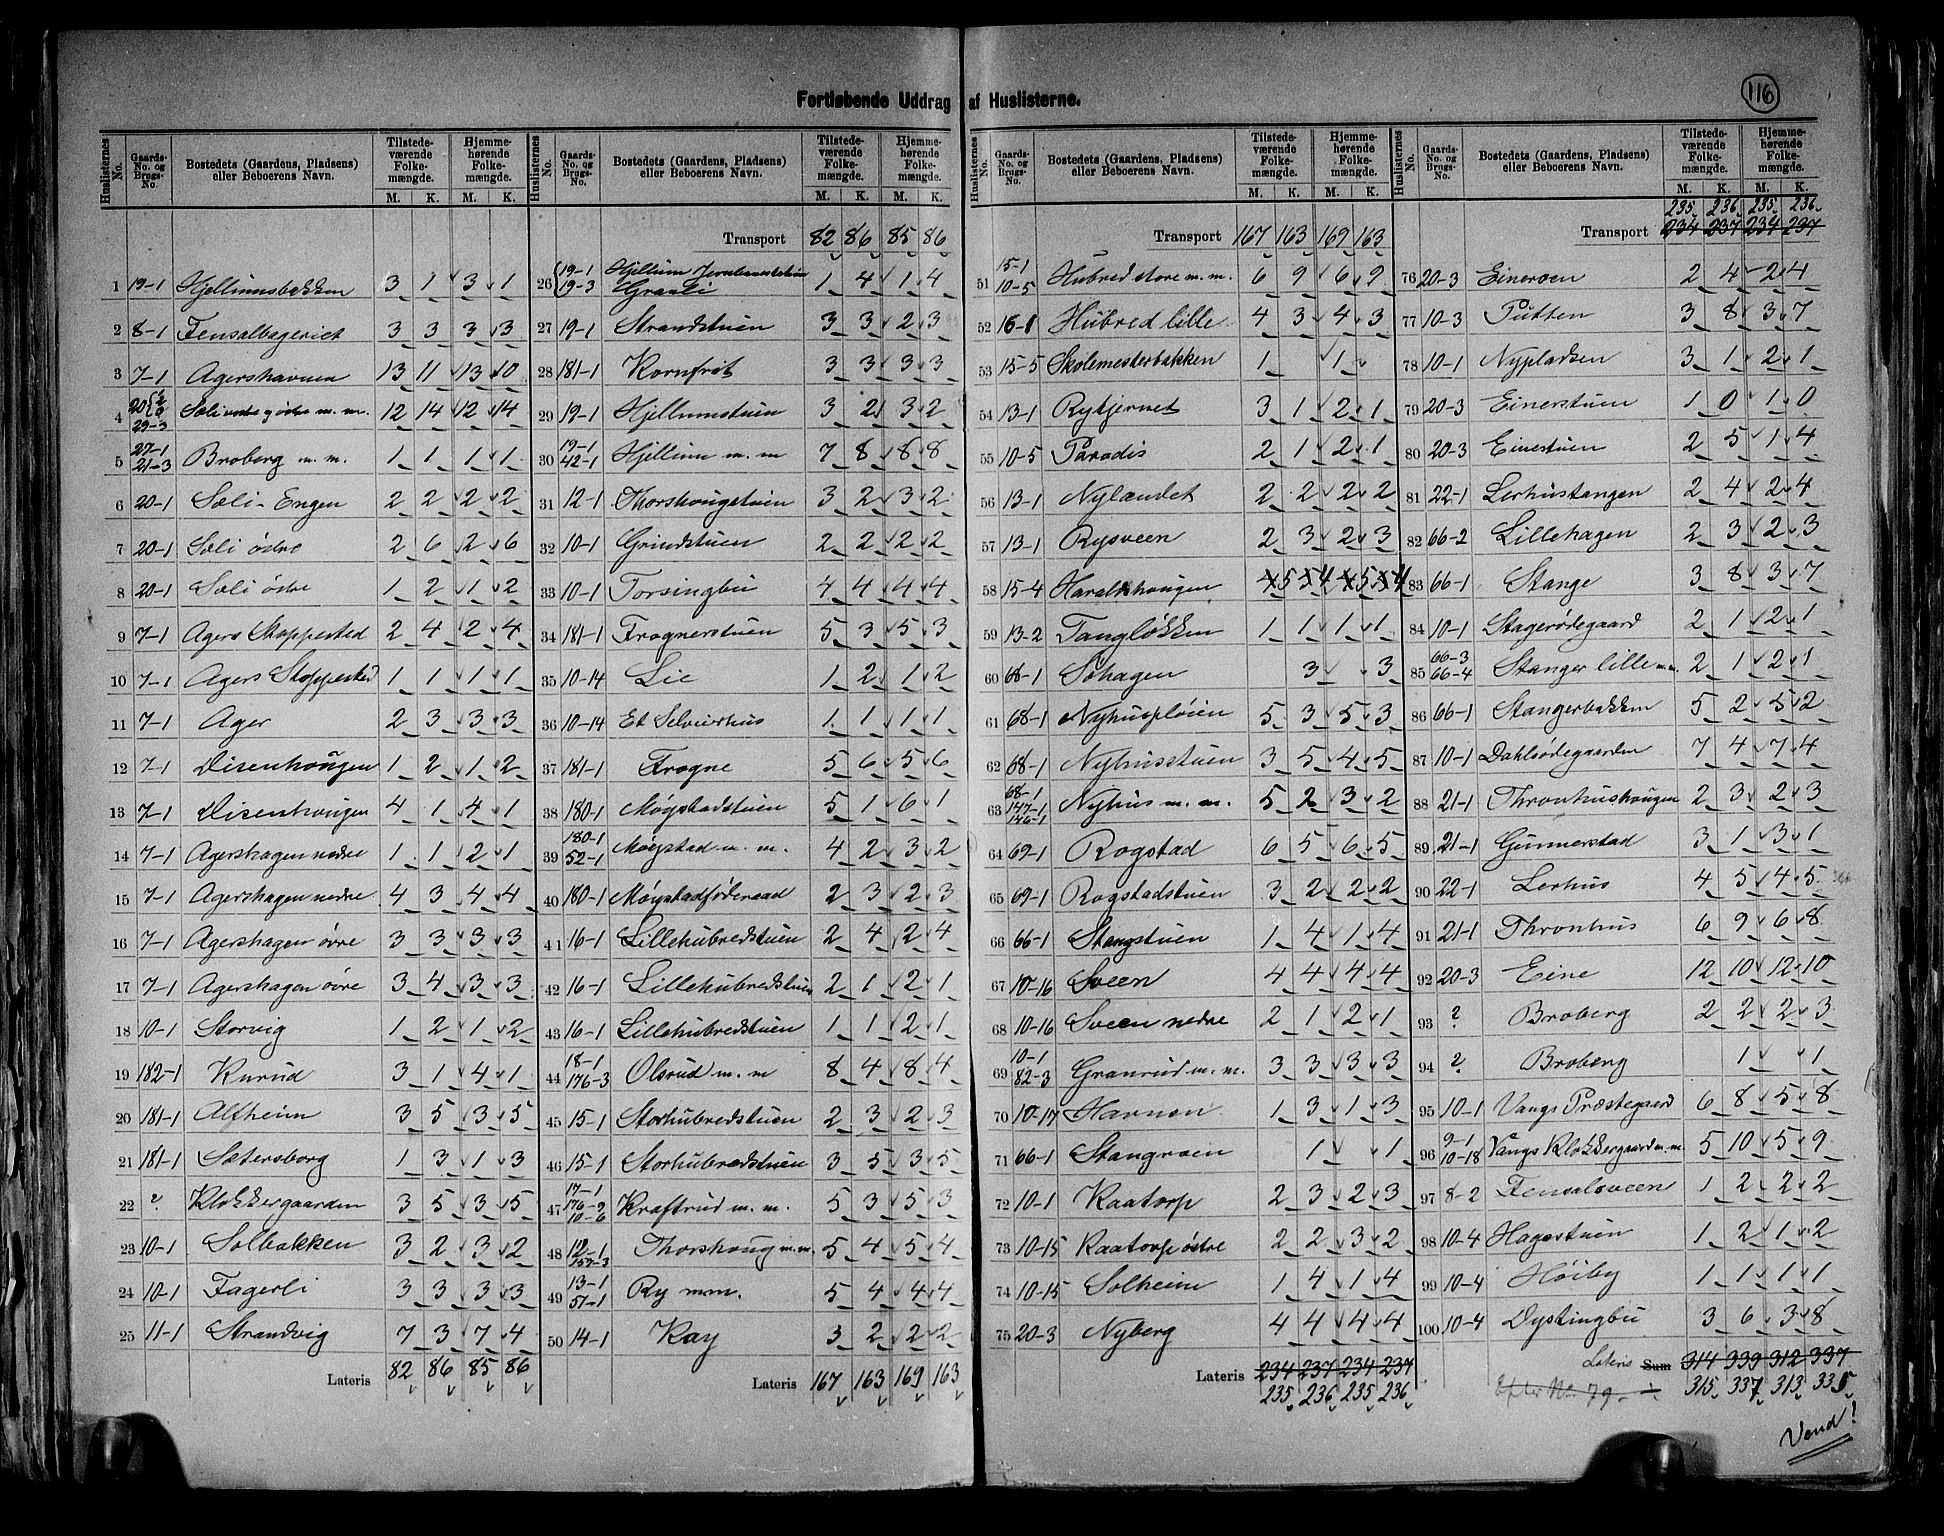 116
Fortløbende Uddrag af Huslisterne.
Huslisternes No. | Gaards-No. og Brugs-No. | Bostedets (Gaardens, Pladsens) eller Beboerens Navn. | Tilstedeværende Folkemængde. M. K. | Hjemmehørende Folkemængde. M. K.
1 19-1 Hjellumsbakken 3 1 3 1
2 8-1 Fensalbageriet 3 3 3 3
3 7-1 Agershavnen 13 11 13 10
4 29-3 m. m. 12 14 12 14
5 27-1 21-3 Broberg m. m. 1 1 1 1
6 20-1 Sæli-Engen 2 2 2 2
7 20-1 Sæli østre 2 6 2 6
8 20-1 Sæli østre 1 2 1 2
9 7-1 Agers Stoppested 2 4 2 4
10 7-1 Agers Stoppested 1 1 1 1
11 7-1 Ager 2 3 3 3
12 7-1 Disenhougen 1 2 1 2
13 7-1 Disenhougen 4 1 4 1
14 7-1 Agershagen nedre 1 1 2 1
15 7-1 Agershagen nedre 4 3 4 4
16 7-1 Agershagen øvre 3 3 3 3
17 7-1 Agershagen øvre 3 4 3 3
18 10-1 Storvig 1 2 1 2
19 182-1 Kurud 3 1 4 1
20 181-1 Alfheim 3 5 3 5
21 181-1 Sætersborg 1 3 1 3
22 ? Klokkergaarden 3 5 3 5
23 10-1 Solbakken 3 2 3 2
24 10-1 Fagerli 3 3 3 3
25 11-1 Strandvig 7 3 7 4
Lateris 82 86 85 86
Huslisternes No. | Gaards-No. og Brugs-No. | Bostedets (Gaardens, Pladsens) eller Beboerens Navn. | Tilstedeværende Folkemængde. M. K. | Hjemmehørende Folkemængde. M. K.
Transport 82 86 85 86
26 19-1 19-3 Hjellum Jernbanestation Granli 1 4 1 4
27 19-1 Strandstuen 3 3 2 3
28 181-1 Kornfrit 3 3 3 3
29 19-1 Hjellumstuen 3 2 3 2
30 19-1 42-1 Hjellum m. m 7 8 8 8
31 12-1 Thorshougstuen 3 2 3 2
32 10-1 Grindstuen 2 2 2 2
33 10-1 Torsingbu 4 4 4 4
34 181-1 Frognerstuen 5 3 5 3
35 10-14 Lie 1 2 1 2
36 10-14 Et Selveierhus 1 1 1 1
37 181-1 Frogne 5 6 5 6
38 180-1 Møystadstuen 5 1 6 1
39 180-1 52-1 Møystad m. m. 4 2 3 2
40 180-1 Møystadføderaad 2 3 2 3
41 16-1 Lillehubredstuen 2 4 2 4
42 16-1 Lillehubredstuen 2 1 2 1
43 16-1 Lillehubredstuen 1 1 2 1
44 18-1 176-3 Olsrud m. m 8 4 8 4
45 15-1 Storhubredstuen 2 3 2 3
46 15-1 Storhubredstuen 3 5 3 5
47 17-1 176-2 10-6 Kraftrud m. m. 5 3 5 3
48 12-1 Thorshoug m. m. 5 4 5 4
49 13-1 51-1 Ry mm. 5 4 4 4
50 14-1 Kay 3 2 2 2
Lateris 167 163 169 163
Huslisternes No. | Gaards-No. og Brugs-No. | Bostedets (Gaardens, Pladsens) eller Beboerens Navn. | Tilstedeværende Folkemængde. M. K. | Hjemmehørende Folkemængde. M. K.
Transport 167 163 169 163
51 15-1 10-5 Hubred store m. m. 6 9 6 9
52 16-1 Hubred lille 4 3 4 3
53 15-5 Skolemesterbakken 1 1
54 13-1 Rytjernet 3 1 2 1
55 10-5 Paradis 2 1 2 1
56 13-1 Nylændet 2 2 2 2
57 13-1 Rysveen 2 3 2 3
58 15-4 Haralkhougen 4 5 5 4 4 5 5 4
59 13-2 Tangløkken 1 1 1 1
60 68-1 Søhagen 3 3
61 68-1 Nyhuspløien 5 3 5 3
62 68-1 Nyhusstuen 3 5 4 5
63 68-1 147-1 146-1 Nyhus m. m. 5 2 3 2
64 69-1 Rogstad 6 5 6 5
65 69-1 Rogstadstuen 3 2 2 2
66 66-1 Stangstuen 1 4 1 4
67 10-16 Sveen 4 4 4 4
68 10-16 Sveen nedre 2 1 2 1
69 10-1 82-3 Granrud m. m. 3 3 3 3
70 10-17 Havnen 1 3 1 3
71 66-1 Stangroen 1 1
72 10-1 Kaatorp 2 3 2 3
73 10-15 Kaatorp østre 2 2 3 2
74 10-15 Solheim 1 4 1 4
75 20-3 Nyberg 4 4 4 4
Lateris 234 237 234 237
235 236 235 236
Huslisternes No. | Gaards-No. og Brugs-No. | Bostedets (Gaardens, Pladsens) eller Beboerens Navn. | Tilstedeværende Folkemængde. M. K. | Hjemmehørende Folkemængde. M. K.
235 236 235 236
Transport 234 237 234 237
76 20-3 Eineroen 2 4 2 4
77 10-3 Putten 3 8 3 7
78 10-1 Nypladsen 3 1 2 1
79 20-3 Einerstuen 1 0 1 0
80 20-3 Einestuen 2 5 1 4
81 22-1 Lerhustangen 2 4 2 4
82 66-2 Lillehagen 2 3 2 3
83 66-1 Stange 3 8 3 7
84 10-1 Stagerødegaard 2 1 2 1
85 66-3 66-4 Stanger lille m. m. 2 1 2 1
86 66-1 Stangerbakken 5 2 5 2
87 10-1 Dahlsødegaarden 7 4 7 4
88 21-1 Thronhushougen 2 3 2 3
89 21-1 Gunnerstad 3 1 3 1
90 22-1 Lerhus 4 5 4 5
91 21-1 Thronhus 6 9 6 8
92 20-3 Eine 12 10 12 10
93 ? Broberg 2 2 2 3
94 ? Broberg 1 1
95 10-1 Vangs Præstegaard 6 8 5 8
96 9-1 10-18 Vangs Klokkergaard m. m. 5 10 5 9
97 8-2 Fensalsveen 1 2 2 2
98 10-4 Hagestuen 1 2 1 2
99 10-4 Høiby 1 1 1 1
100 10-4 Dystingbu 3 6 3 8
Lateris Sum 314 339 312 337
Efter No. 79. 315 337 313 335
Vend!